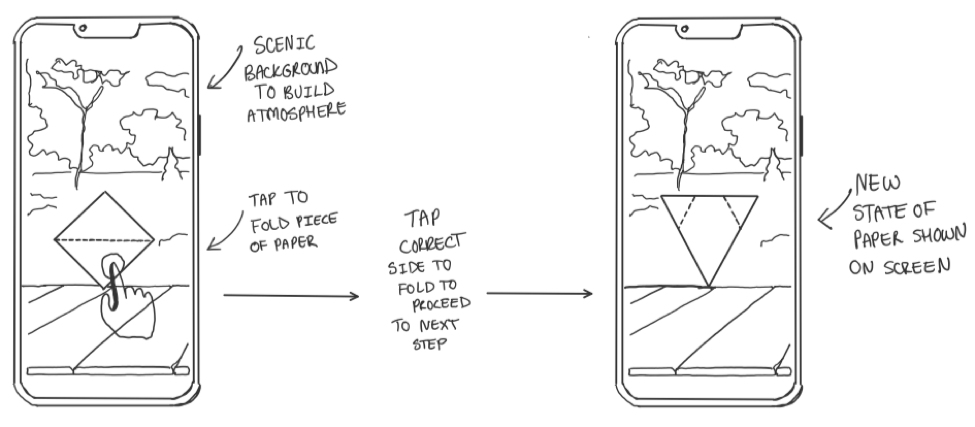 SCENIC
BACKGROUND
TO BUILD
ATMOSPHERE
TAP TO
FOLD PIECE
OF PAPER
TAP
CORRECT
SIDE TO
FOLD TO
PROCEED
TO NEXT
STEP
NEW
STATE OF
PAPER SHOWN
ON SCREEN